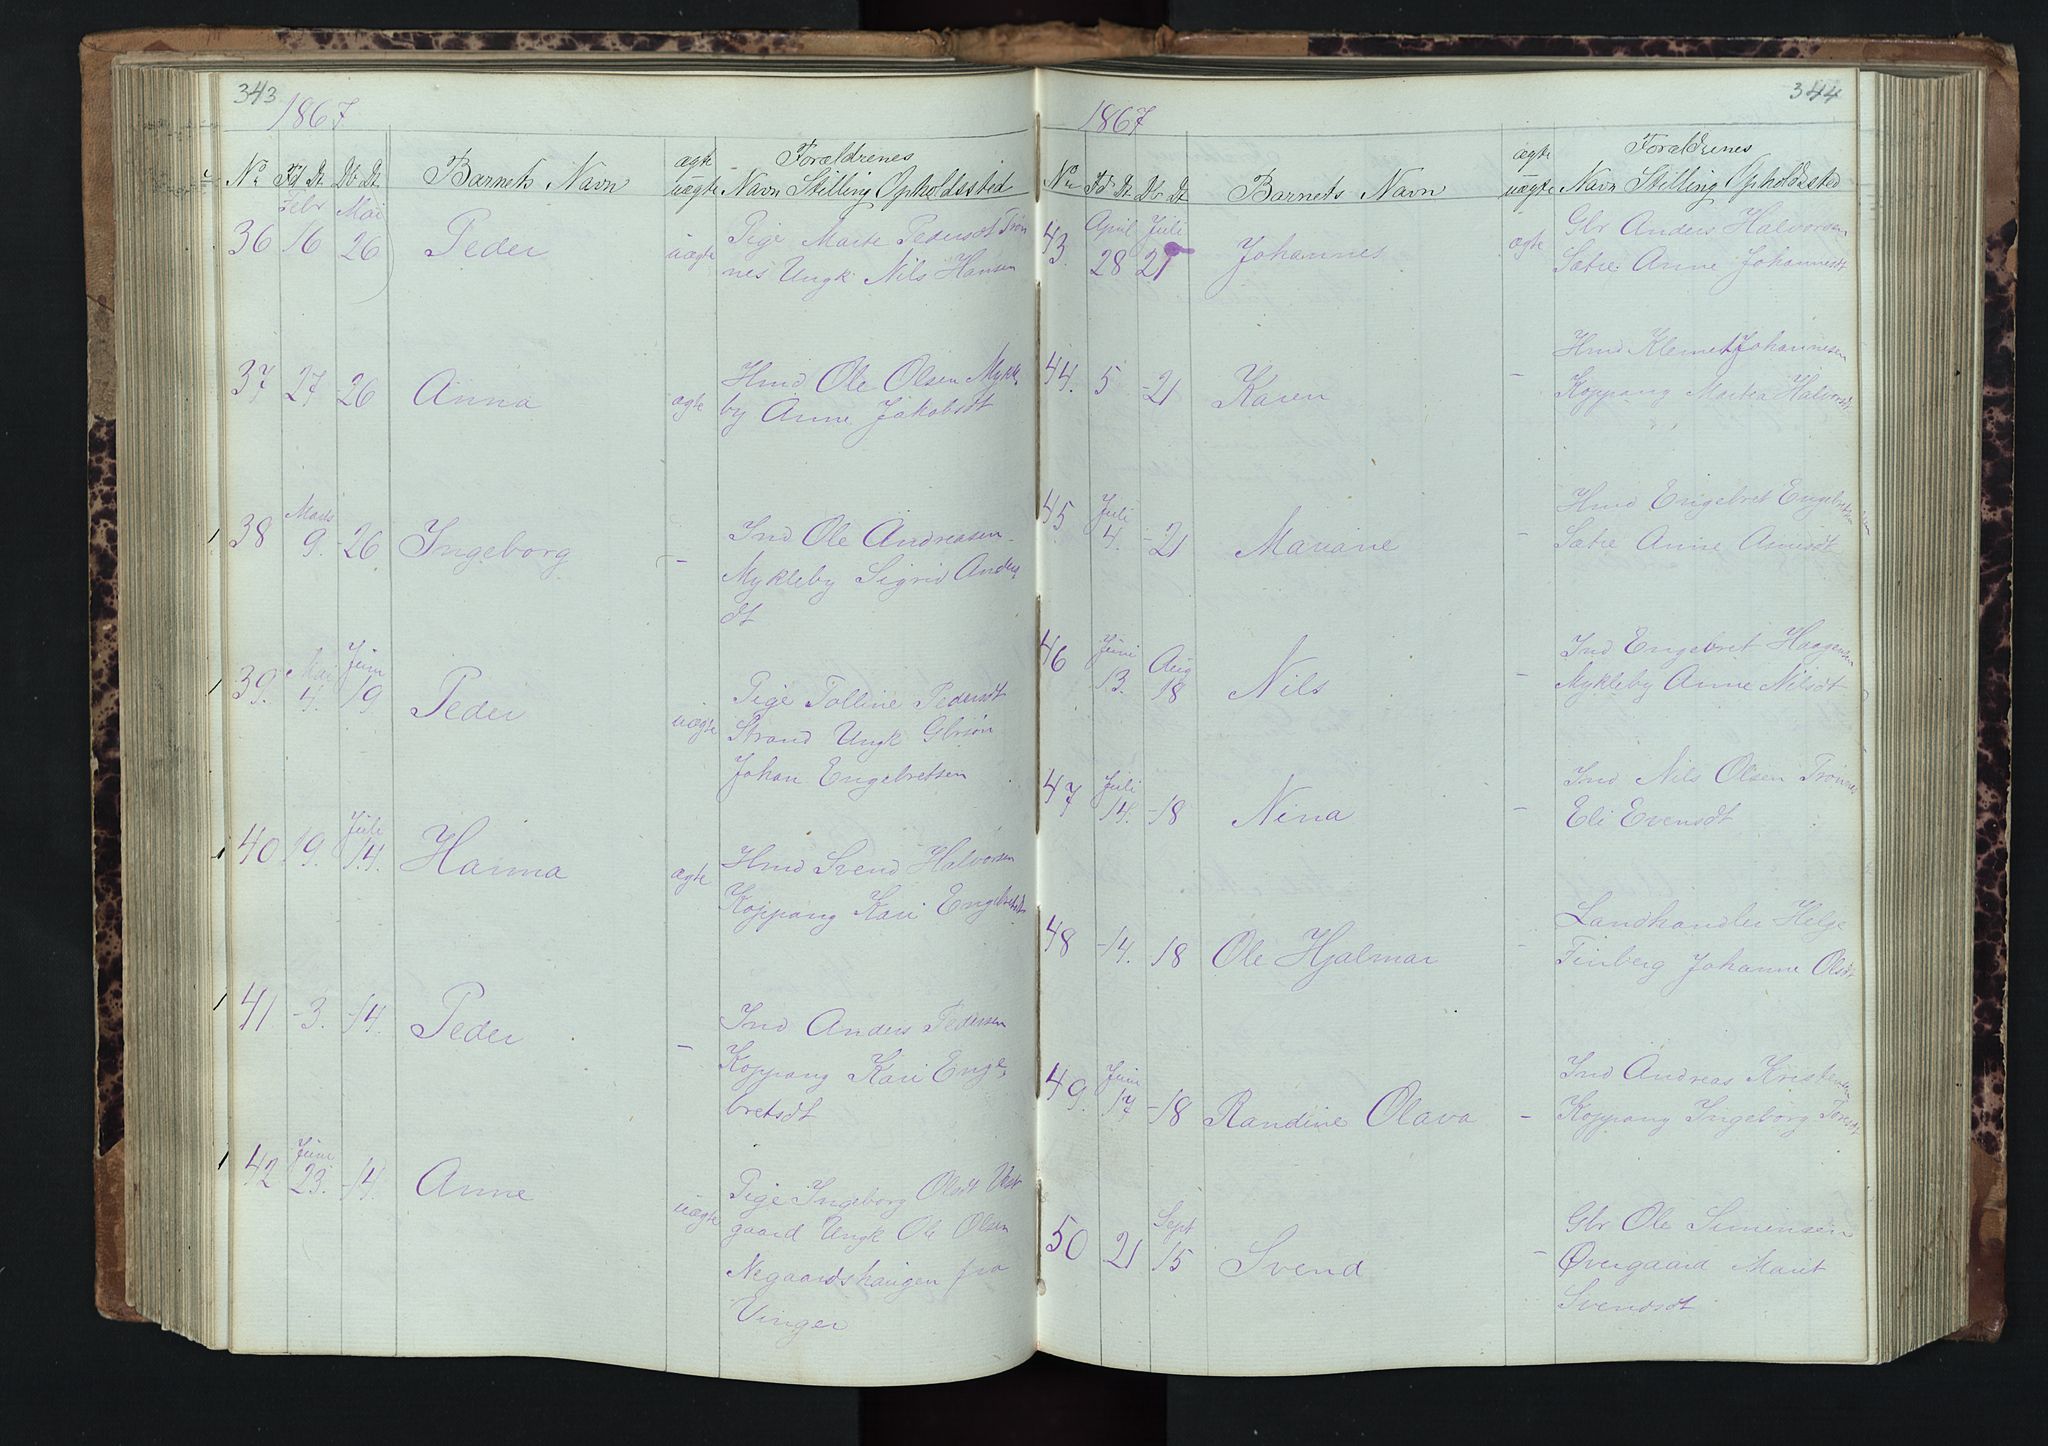 343
1867
No Fd Dt Db Dt Barnets Navn ægte uægte Forældrenes Navn Stilling Opholdssted
36 Febr 16 Mai 26 Peder uægte Pige Marte Pedersdt Trøn
nes Ungk Nils Hansen
37 27 -26 Anna ægte Hmd Ole Olsen Mykle
by Anne Jakobsdt
38 Marts 9. -26 Ingeborg - Ind Ole Andreasen
Mykleby Sigrid Anders
dt
39. Mai 4. Juni 19 Peder uægte Pige Polline Pedersdt
Strand Ungk Gbrsøn
Johan Engebretsen
40 19. Juli 14. Hanna ægte Hmd Svend Halvorsen
Koppang Kari Engebretsdt
41 -3. -14. Peder - Ind Anders Pedersen
Koppang Kari Enge
bretsdt
42 Juni 23. -14. Anne uægte Pige Ingeborg Olsdt Vest
gaard Ungk Ole Olsen
Negaardshaugen fra
Vinger
344
1867
No Fd Dt Db Dt Barnets Navn ægte uægte Forældrenes Navn Stilling Opholdssted
43. April 28 Juli 21 Johannes ægte Gbr Anders Halvorsen
Sætre Anne Johannesdt
44. 5 -21 Karen - Hmd Klemet Johannesen
Koppang Martea Halvorsdt
45. Juli 4. -21 Mariane - Hmd Engebret Engebretsen
Sætre Anne Arnesdt
46 Juni 13. Aug 18 Nils - Ind Engebret Haagensen
Mykleby Anne Nilsdt
47 Juli 14. -18 Nina - Ind Nils Olsen Trønnes
Eli Evensdt
48 -14. -18 Ole Hjalmar - Landhandler Helge
Finberg Johanne Olsdt
49. Juni 17 -18 Randine Olava - Ind Andreas Kristensen
Koppang Ingeborg Toresdt
50 21 Sept 15 Svend - Gbr Ole Simensen
Øvergaard Marit
Svendsdt